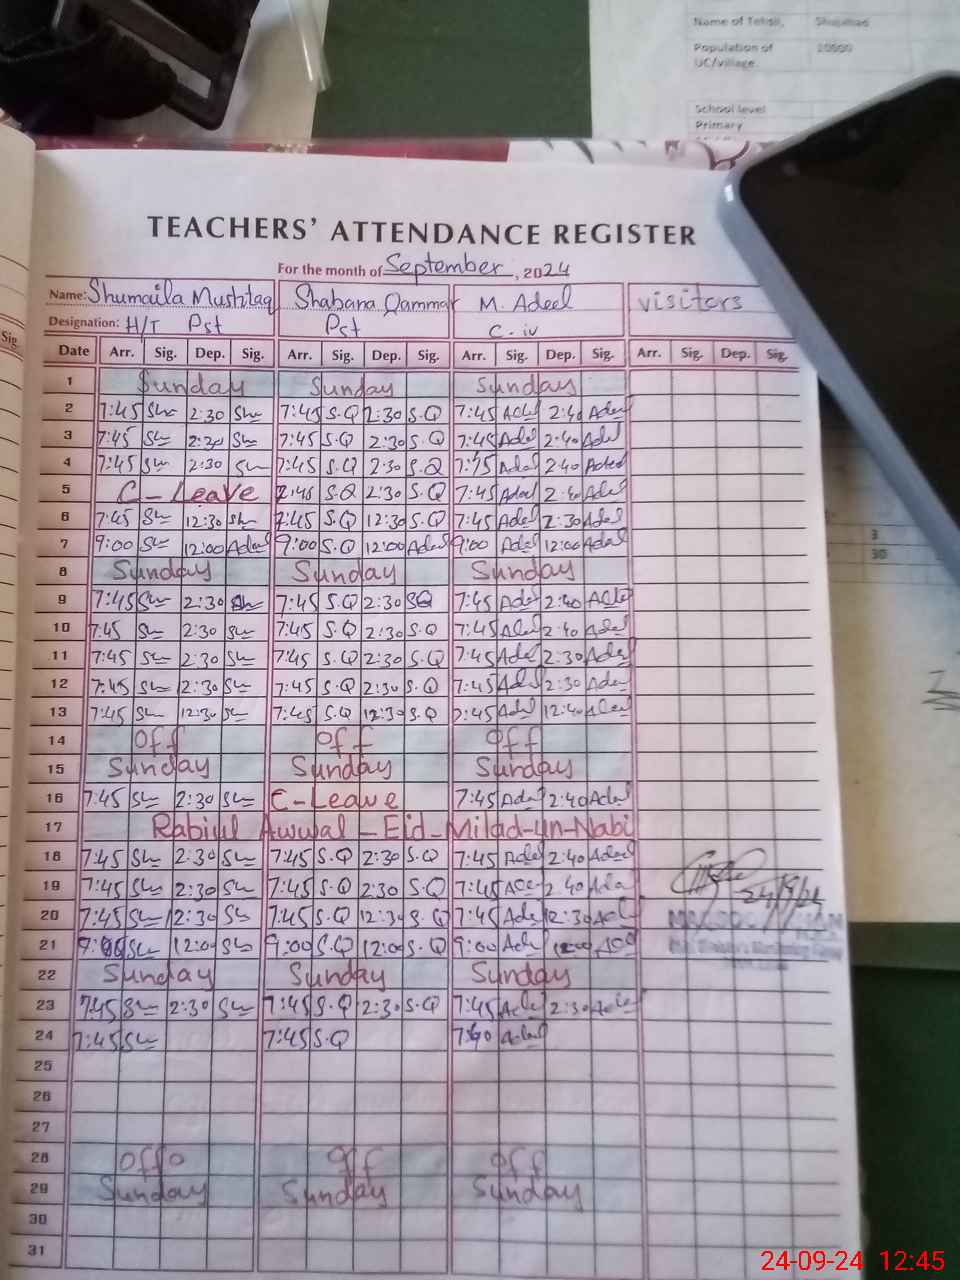 Name of Tehsil, Shujabad
Population of 20000
UC/village.
School level
Primary
TEACHERS' ATTENDANCE REGISTER
For the month of September, 2024
Name: Shumaila Mushtaq Shabana Qammar M. Adeel visitors
Designation: H/T Pst Pst C-iv
Sig.
Date Arr. Sig. Dep. Sig. Arr. Sig. Dep. Sig. Arr. Sig. Dep. Sig. Arr. Sig. Dep. Sig.
1 Sunday Sunday Sunday
2 7:45 Sh 2:30 Sh 7:45 S.Q 2:30 S.Q 7:45 Adeel 2:40 Adeel
3 7:45 Sh 2:30 Sh 7:45 S.Q 2:30 S.Q 7:45 Adeel 2:40 Adeel
4 7:45 Sh 2:30 Sh 7:45 S.Q 2:30 S.Q Adeel 2:40 Adeel
5 C-Leave 7:45 S.Q 2:30 S.Q 7:45 Adeel 2:40 Adeel
6 7:45 Sh 12:30 Sh 7:45 S.Q 12:30 S.Q 7:45 Adeel 2:30 Adeel
7 9:00 Sh 12:00 Adeel 9:00 S.Q 12:00 Adeel 9:00 Adeel 12:00 Adeel
8 Sunday Sunday Sunday
9 7:45 Sh 2:30 Sh 7:45 S.Q 2:30 SQ 7:45 Adeel 2:40 Adeel
10 7:45 Sh 2:30 Sh 7:45 S.Q 2:30 S.Q 7:45 Adeel 2:40 Adeel
11 7:45 Sh 2:30 Sh 7:45 S.Q 2:30 S.Q 7:45 Adeel 2:30 Adeel
12 7:45 Sh 2:30 Sh 7:45 S.Q 2:30 S.Q 7:45 Adeel 2:30 Adeel
13 7:45 Sh 12:30 Sh 7:45 S.Q 12:30 S.Q 7:45 Adeel 12:40 Adeel
14 Off Off Off
15 Sunday Sunday Sunday
16 7:45 Sh 2:30 Sh C-Leave 7:45 Adeel 2:40 Adeel
17 Rabiul Awwal - Eid-Milad-un-Nabi
18 7:45 Sh 2:30 Sh 7:45 S.Q 2:30 S.Q 7:45 Adeel 2:40 Adeel
19 7:45 Sh 2:30 Sh 7:45 S.Q 2:30 S.Q 7:45 Adeel 2:40 Adeel
24/9/24
20 7:45 Sh 12:30 Sh 7:45 S.Q 12:30 S.Q 7:45 Adeel 12:30 Adeel
21 9:00 Sh 12:00 Sh 9:00 S.Q 12:00 S.Q 9:00 Adeel 12:00 Adeel
22 Sunday Sunday Sunday
23 7:45 Sh 2:30 Sh 7:45 S.Q 2:30 S.Q 7:45 Adeel 2:30 Adeel
24 7:45 Sh 7:45 S.Q 7:40 Adeel
25
26
27
28 Off Off Off
29 Sunday Sunday Sunday
30
31
3
30
24-09-24 12:45